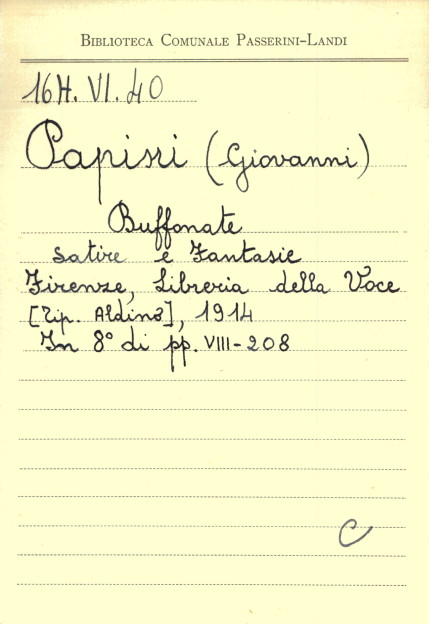 BIBLIOTECA COMUNALE PASSERINI-LANDI
16H. VI. 40
Papini (Giovanni)
Buffonate
satire e Fantasie
Firenze, Libreria della Voce
[Tip. Aldina], 1914
In 8° di pp. VIII-208
C